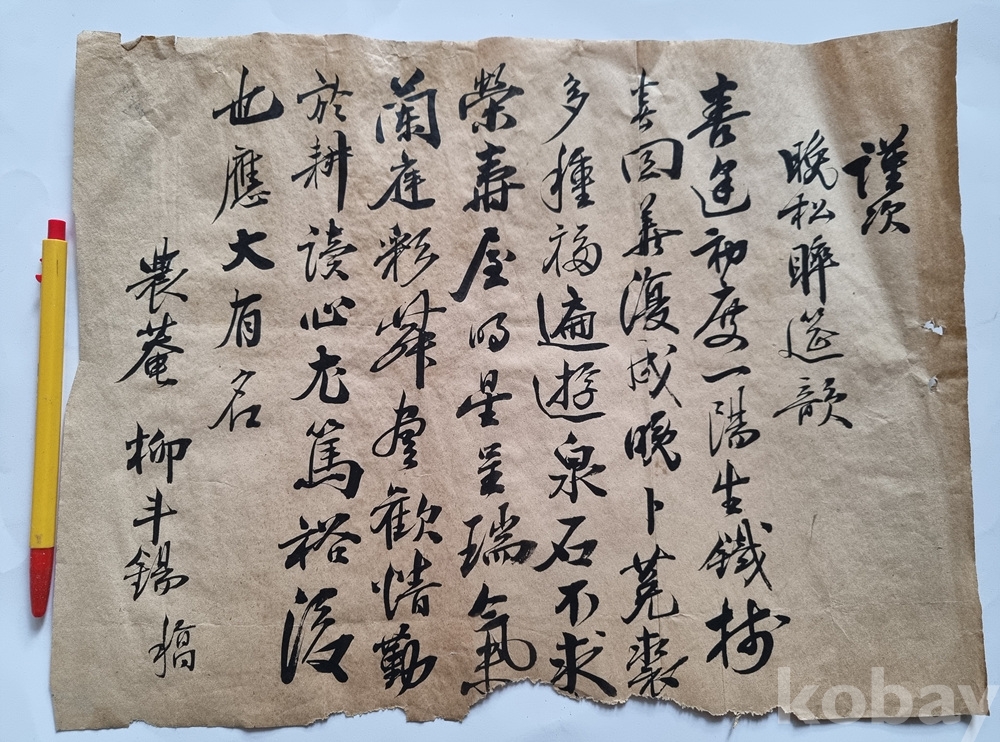 謹次
晚松晬筵韻
喜逢初度一陽生鐵樹
春回復成晚卜菟裘
多種福遍遊泉石不求
榮壽屋明星呈瑞氣
蘭庭彩舞盡歡情勤
於耕讀心尤篤裕後
也應大有名
農菴 柳斗錫 稿
kobay